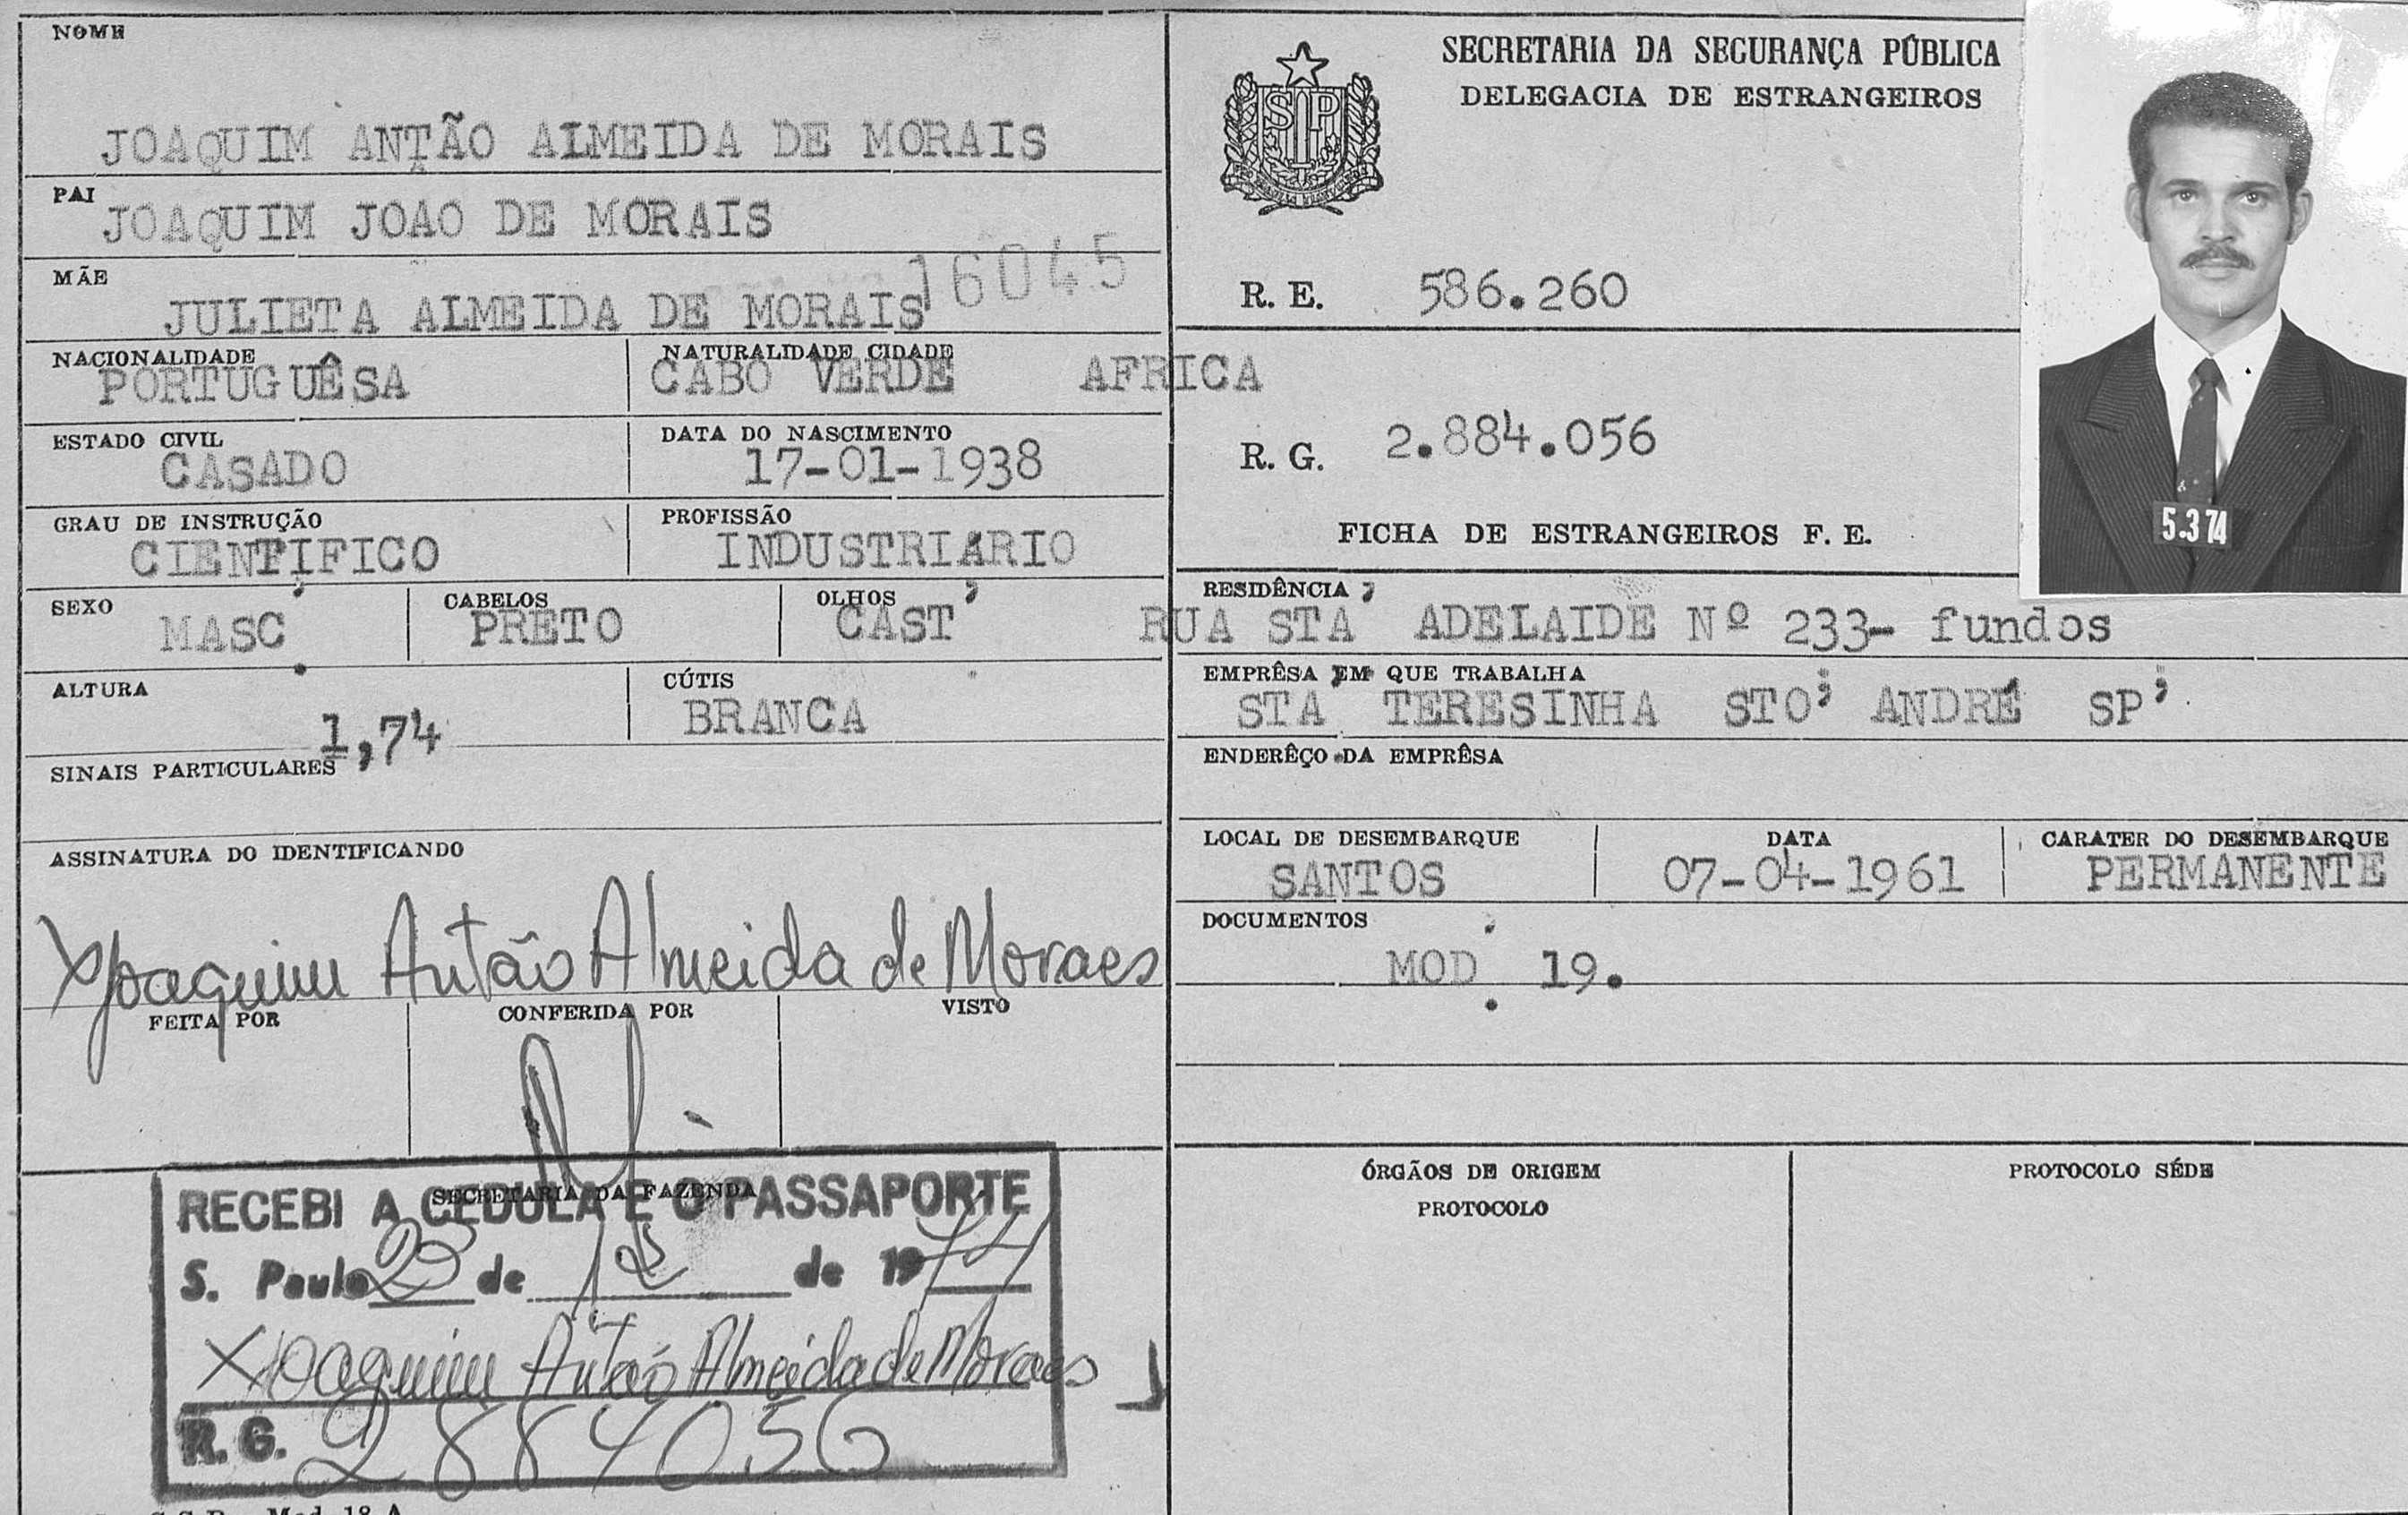 NOME
JOAQUIM ANTÃO ALMEIDA DE MORAIS
PAI
JOAQUIM JOAO DE MORAIS
MÃE
16045
JULIETA ALMEIDA DE MORAIS
NACIONALIDADE
PORTUGUÊSA
NATURALIDADE CIDADE
CABO VERDE AFRICA
ESTADO CIVIL
CASADO
DATA DO NASCIMENTO
17-01-1938
GRAU DE INSTRUÇÃO
CIENTIFICO
PROFISSÃO
INDUSTRIÁRIO
SEXO
MASC.
CABELOS
PRETO
OLHOS
CAST
ALTURA
1,74
CÚTIS
BRANCA
SINAIS PARTICULARES
ASSINATURA DO IDENTIFICANDO
X Joaquim Antão Almeida de Moraes
FEITA POR
CONFERIDA POR
VISTO
SECRETARIA DA FAZENDA
RECEBI A CEDULA E O PASSAPORTE
S. Paulo 23 de 12 de 1974
X Joaquim Antão Almeida de Moraes
R. G. 2884056
Mod. 18 A
SECRETARIA DA SEGURANÇA PÚBLICA
DELEGACIA DE ESTRANGEIROS
SP
R. E. 586.260
R. G. 2.884.056
FICHA DE ESTRANGEIROS F. E.
5.3 74
RESIDÊNCIA
RUA STA ADELAIDE Nº 233- fundos
EMPRÊSA EM QUE TRABALHA
STA TERESINHA STO ANDRÉ SP
ENDERÊÇO DA EMPRÊSA
LOCAL DE DESEMBARQUE
SANTOS
DATA
07-04-1961
CARATER DO DESEMBARQUE
PERMANENTE
DOCUMENTOS
MOD. 19.
ÓRGÃOS DE ORIGEM
PROTOCOLO
PROTOCOLO SÉDE